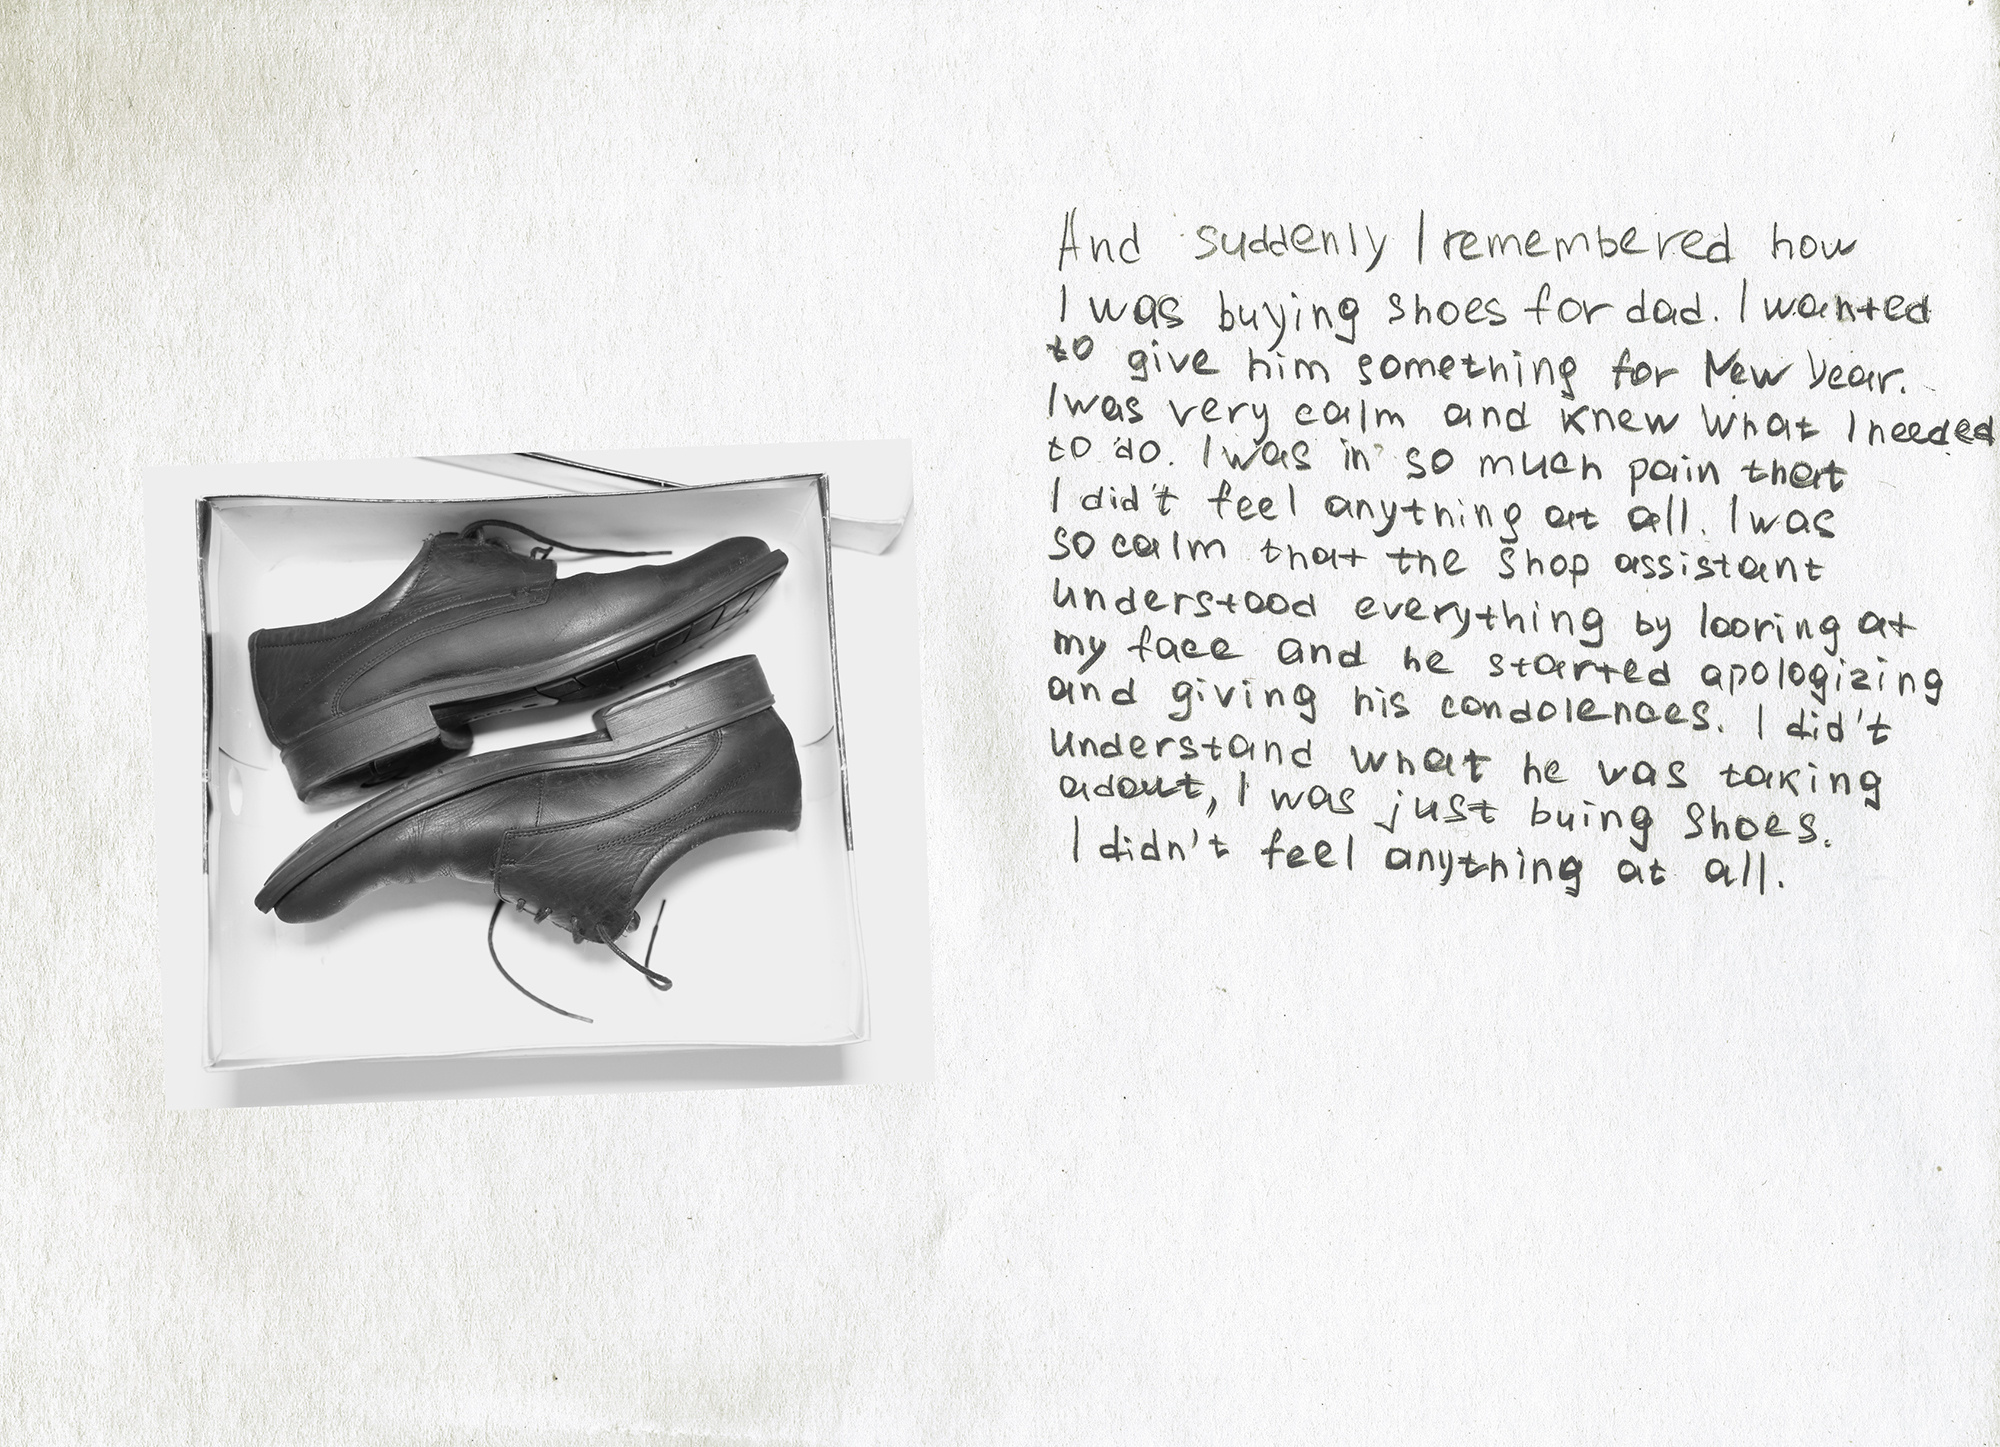 And suddenly I remembered how
I was buying shoes for dad. I wanted
to give him something for New Year.
I was very calm and knew what I needed
to do. I was in so much pain that
I did't feel anything at all. I was
so calm that the shop assistant
understood everything by looring at
my face and he started apologizing
and giving his condolences. I did't
understand what he vas taking
adout, I was just buing shoes.
I didn't feel anything at all.